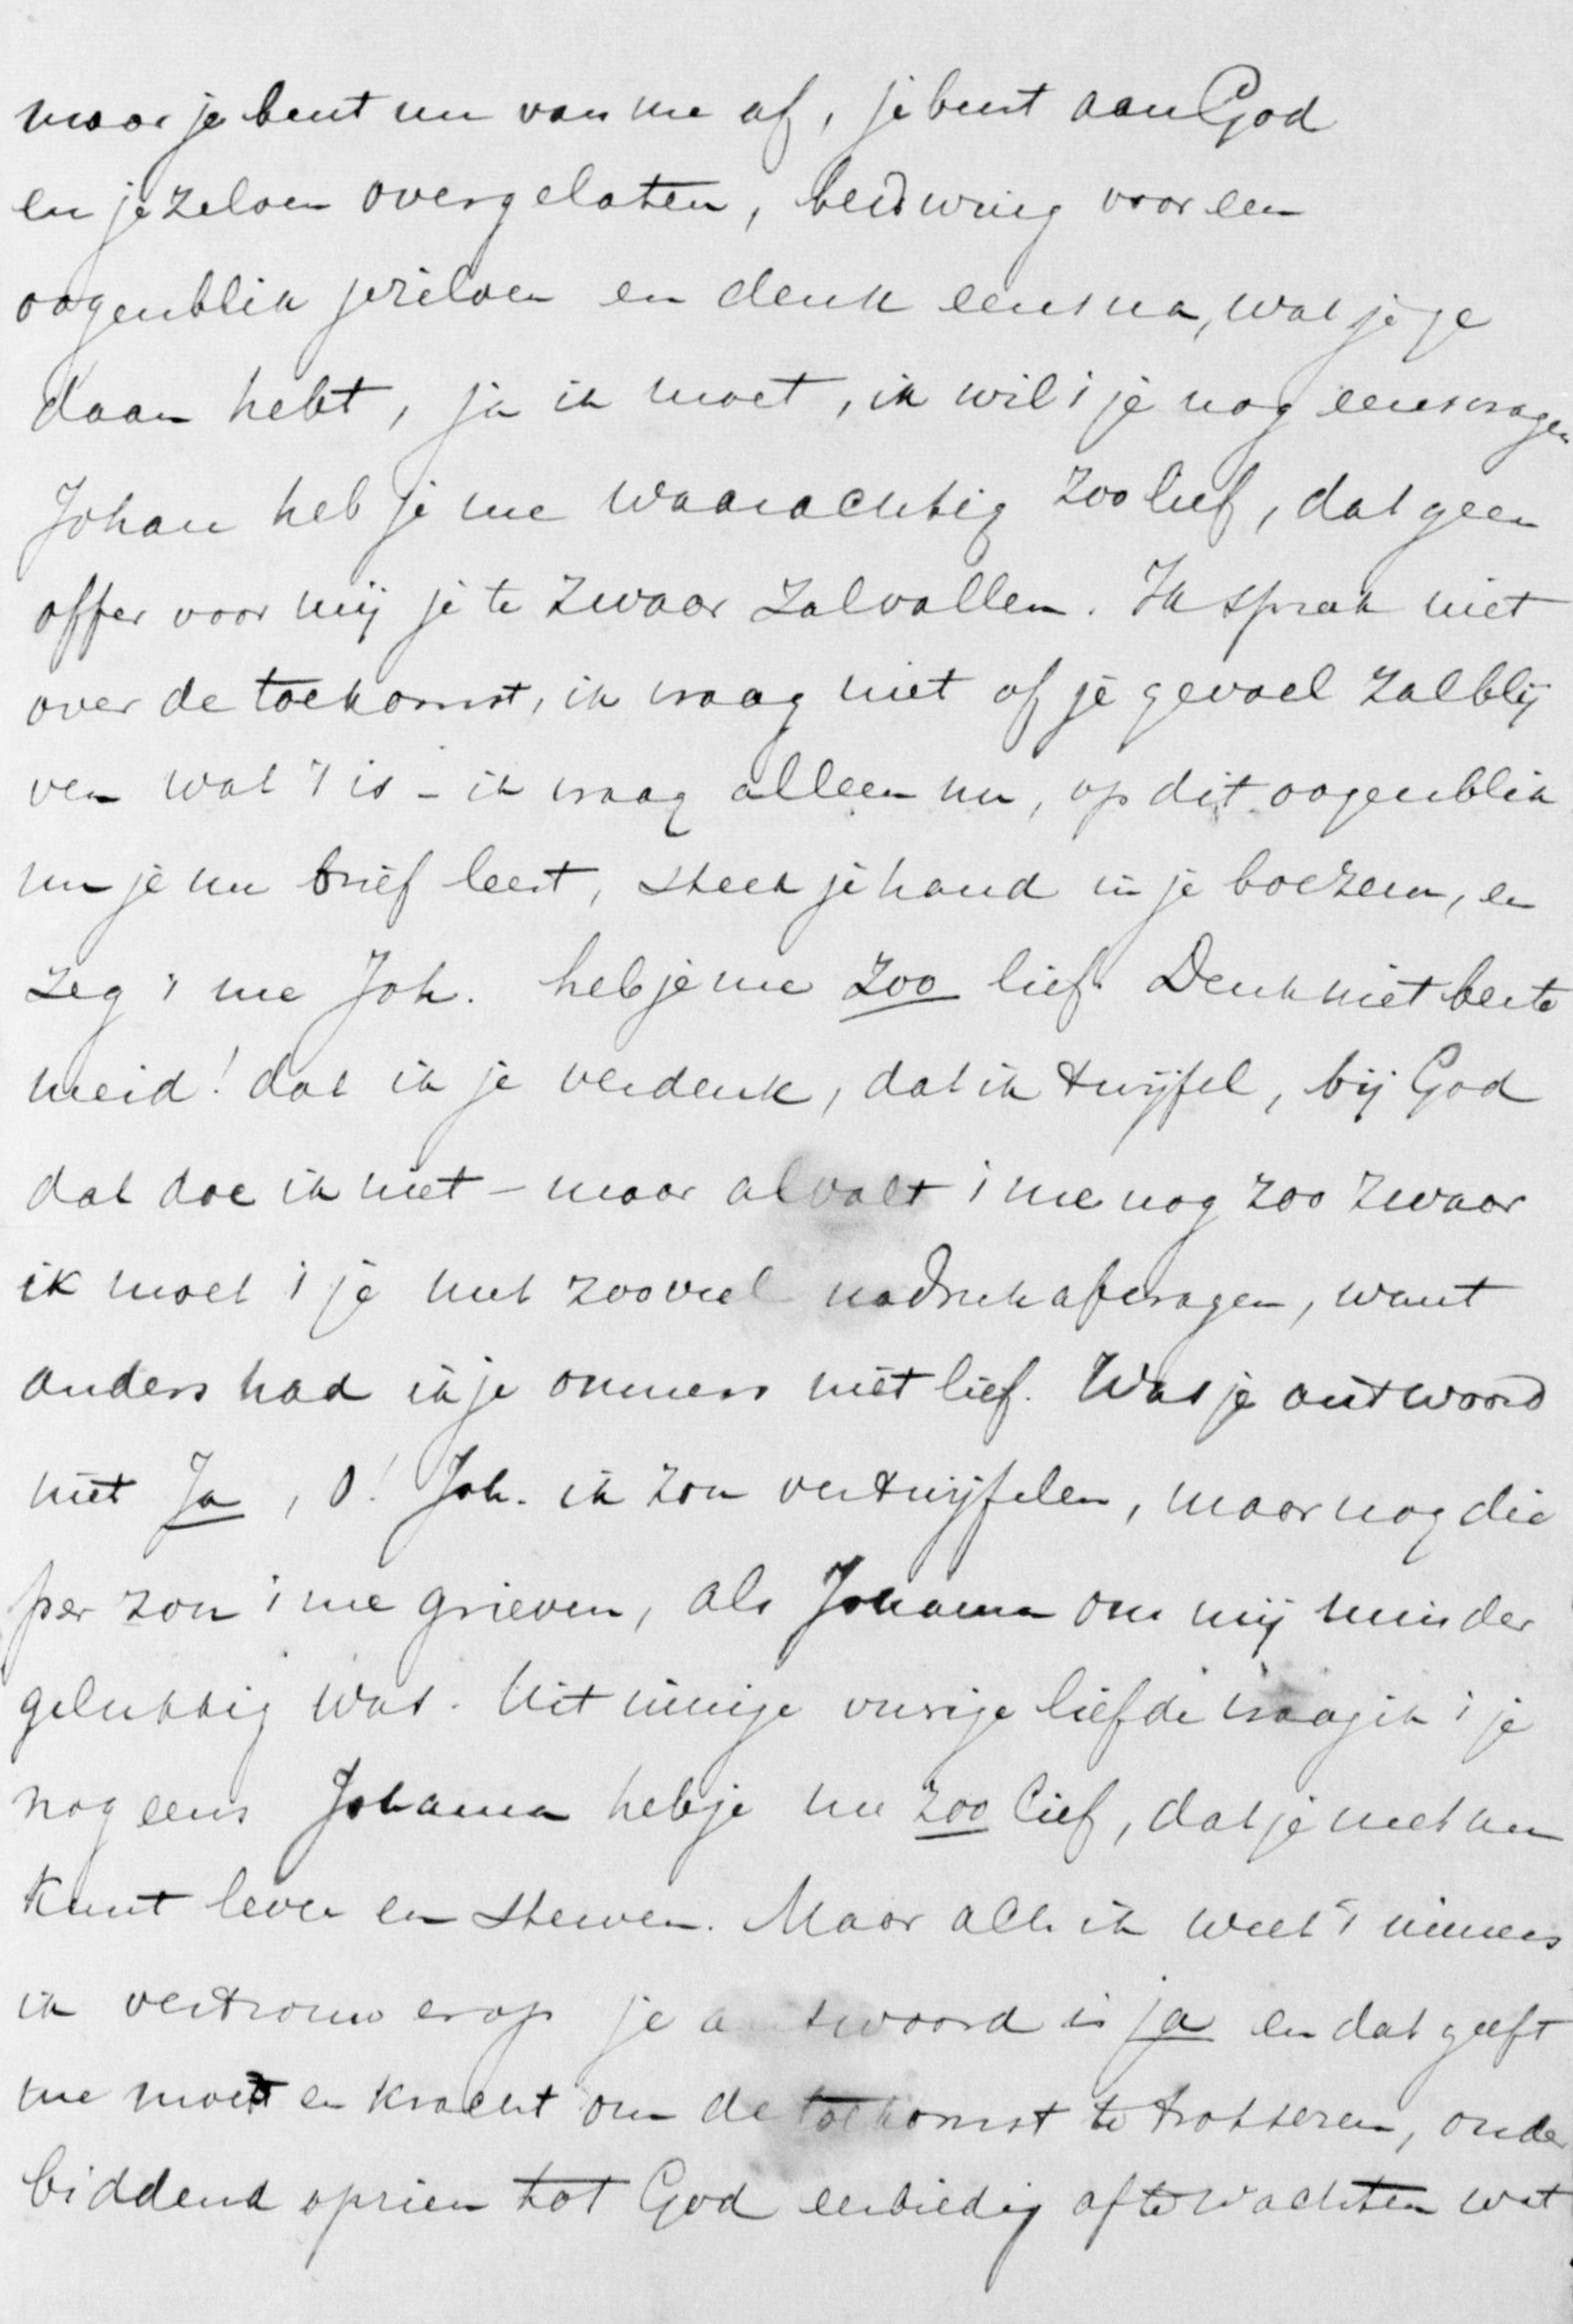 maar je bent nu van me af, je bent aan God
en je zelven overgelaten, bedwing voor een
oogenblik jezelven en denk eens na, wat je ge
daan hebt, ja ik moet, ik wil 't je nog eens vragen
Johan heb je me waarachtig zoo lief, dat geen
offer voor mij je te zwaar zal vallen. Ik spreek niet
over de toekomst, ik vraag niet of je gevoel zal blij
ven wat 't is - ik vraag alleen nu, op dit oogenblik
nu je mn brief leest, steek je hand in je boezem, en
zeg 't me Joh. heb je me zoo lief. Denk niet beste
meid! dat ik je verdenk, dat ik twijfel, bij God
dat doe ik niet – maar al valt 't me nog zoo zwaar
ik moet 't je met zooveel nadruk afvragen, want
anders had ik je immers niet lief. Was je antwoord
niet Ja, O! Joh. ik zou vertwijfelen, maar nog die
per zou 't me grieven, als Johanna om mij minder
gelukkig was. Uit innige vurige liefde vraag ik 't je
nog eens Johanna heb je me zoo lief, dat je met me
kunt leven en sterven. Maar ach ik weet 't immers
ik vertrouw erop je antwoord is ja en dat geeft
me moed en kracht om de toekomst te trotseren, onder
biddend opzien tot God eerbiedig af te wachten wat